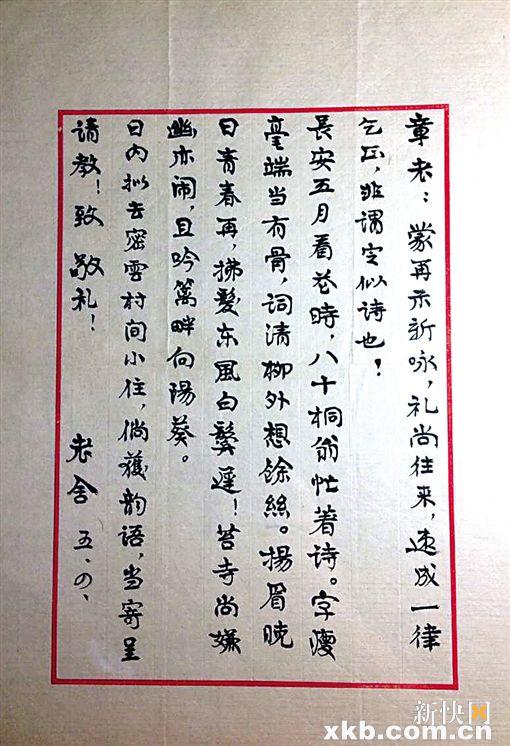 章老：蒙再示新咏，礼尚往来，速成一律
乞正，非谓定似诗也！
長安五月看花時，八十桐翁忙着诗。字瘦
毫端当有骨，词清柳外想餘絲。揚眉晓
日青春再，拂髮东風白鬓遲！苔寺尚嫌
幽亦闹，且吟篱畔向陽葵。
日内拟去密雲村间小住，倘獲韵语，当寄呈
请教！致 敬礼！
老舍 五、四、
新快网
xkb.com.cn